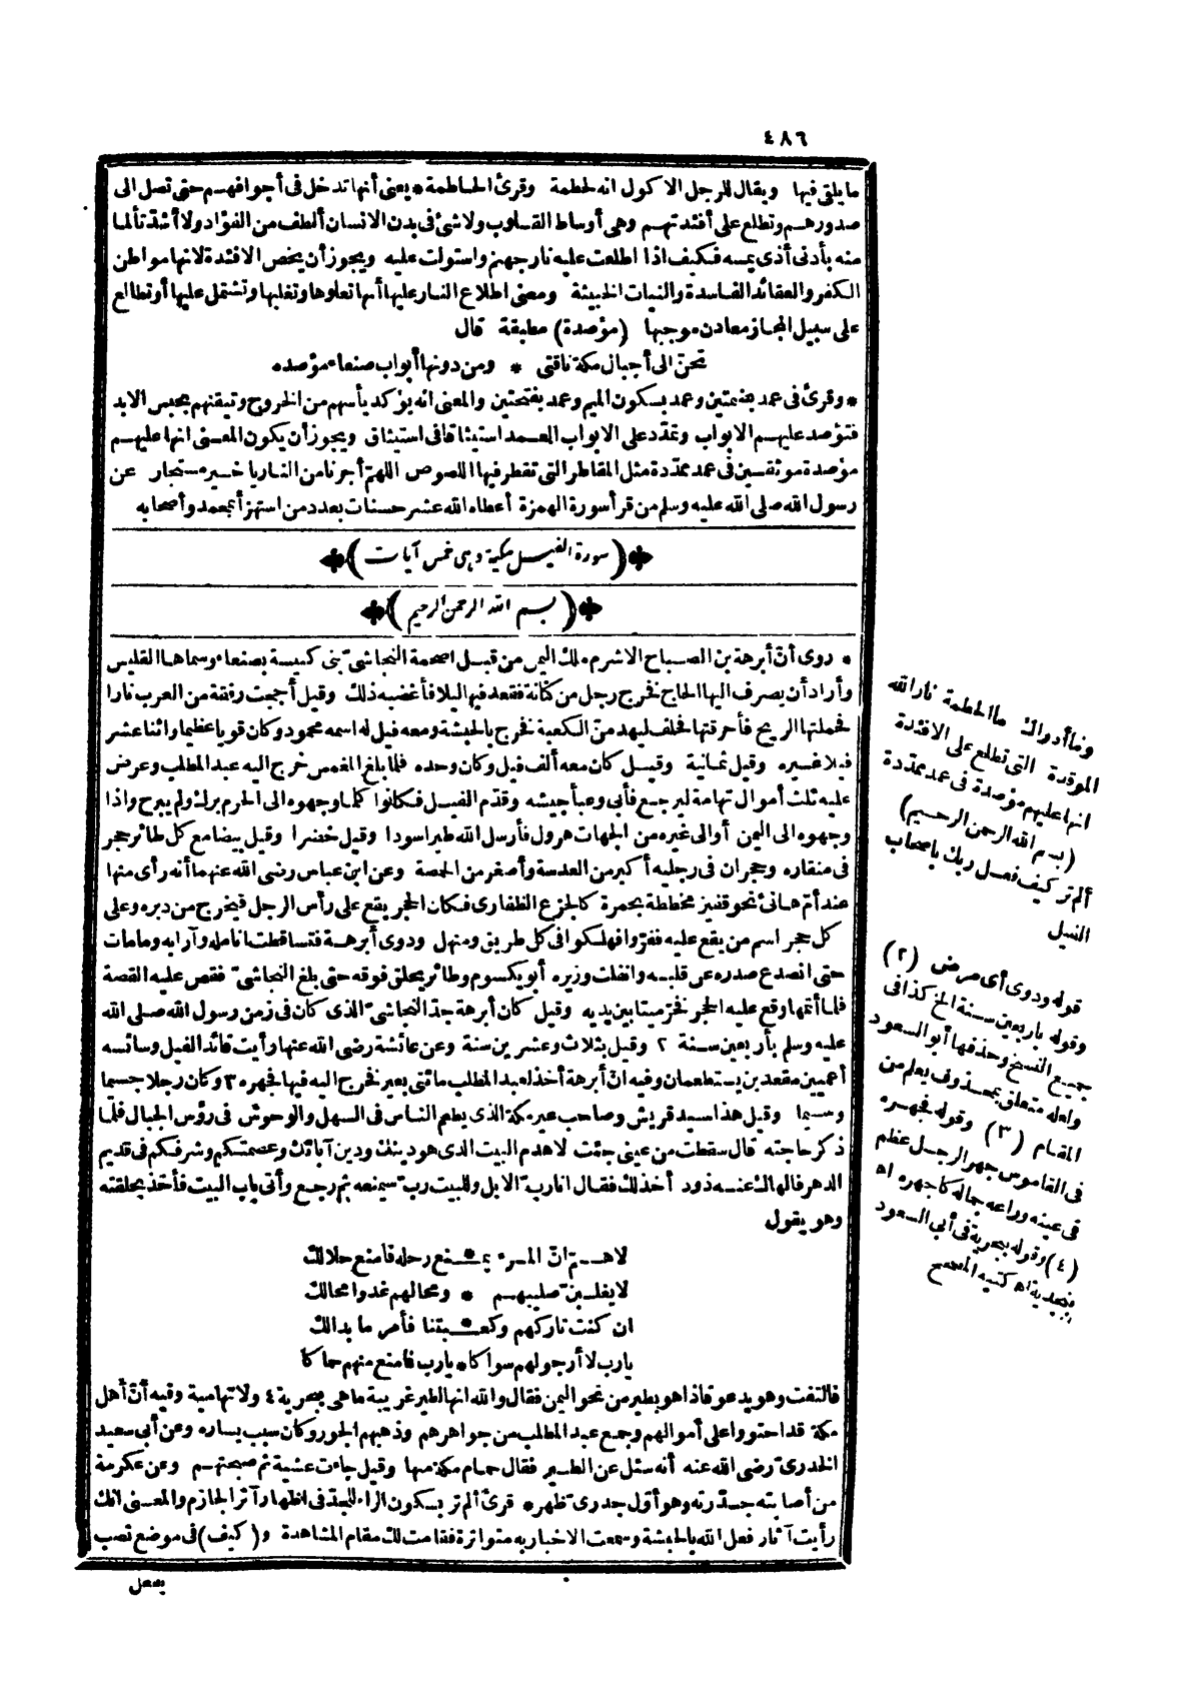 ٤٨٦
ما يلقى فيها ويقال للرجل الاكول انه لحطمة وقرئ الحاطمة * يعنى أنها تدخل فى أجوافهم حتى تصل الى
صدورهم وتطلع على أفئدتهم وهى أوساط القلوب ولا شئ فى بدن الانسان ألطف من الفؤاد ولا أشد تألما
منه بأدنى أذى يمسه فكيف اذا اطلعت عليه نار جهنم واستولت عليه ويجوز أن يخص الافئدة لانها مواطن
الكفر والعقائد الفاسدة والنيات الخبيثة ومعنى اطلاع النار عليها أنها تعلوها وتغلبها وتشتمل عليها أو تطالع
على سبيل المجاز معادن موجبها (مؤصدة) مطبقة قال
تحنّ الى أجبال مكة ناقتى * ومن دونها أبواب صنعاء مؤصده
* وقرئ فى عمد بضمتين وعمد بسكون الميم وعمد بفتحتين والمعنى انه يؤكد يأسهم من الخروج وتيقنهم بحبس الابد
فتؤصد عليهم الابواب وتمدّد على الابواب العمد استيثاقا فى استيثاق ويجوز أن يكون المعنى انها عليهم
مؤصدة موثقين فى عمد ممدّدة مثل المقاطر التى تقطر فيها اللصوص اللهمّ أجرنا من النار يا خير مستجار عن
رسول الله صلى الله عليه وسلم من قرأ سورة الهمزة أعطاه الله عشر حسنات بعدد من استهزأ بمحمد وأصحابه
(سورة الفيل مكية وهى خمس آيات)
(بسم الله الرحمن الرحيم)
* روى أنّ أبرهة بن الصباح الاشرم ملك اليمن من قبل اصحمة النجاشىّ بنى كنيسة بصنعاء وسماها القليس
وأراد أن يصرف اليها الحاج فخرج رجل من كنانة فقعد فيها ليلا فأغضبه ذلك وقيل أججت رفقة من العرب نارا
فحملتها الريح فأحرقتها فحلف ليهدمنّ الكعبة فخرج بالحبشة ومعه فيل له اسمه محمود وكان قويا عظيما واثنا عشر
فيلا غيره وقيل ثمانية وقيل كان معه ألف فيل وكان وحده فلما بلغ المغمس خرج اليه عبد المطلب وعرض
عليه ثلث أموال تهامة ليرجع فأبى وعبأ جيشه وقدّم الفيل فكانوا كلما وجهوه الى الحرم برك ولم يبرح واذا
وجهوه الى اليمن أو الى غيره من الجهات هرول فأرسل الله طيرا سودا وقيل خضرا وقيل بيضا مع كل طائر حجر
فى منقاره وحجران فى رجليه أكبر من العدسة وأصغر من الحمصة وعن ابن عباس رضى الله عنهما أنه رأى منها
عند أمّ هانئ نحو قفيز مخططة بحمرة كالجزع الظفارى فكان الحجر يقع على رأس الرجل فيخرج من دبره وعلى
كل حجر اسم من يقع عليه ففرّوا فهلكوا فى كل طريق ومنهل ودوى أبرهة فتساقطت انامله وآرابه وما مات
حتى انصدع صدره عن قلبه وانفلت وزيره أبو يكسوم وطائر يحلق فوقه حتى بلغ النجاشىّ فقص عليه القصة
فلما أتمها وقع عليه الحجر فخرّ ميتا بين يديه وقيل كان أبرهة جدّ النجاشىّ الذى كان فى زمن رسول الله صلى الله
عليه وسلم بأربعين سنة ٢ وقيل بثلاث وعشرين سنة وعن عائشة رضى الله عنها رأيت قائد الفيل وسائسه
أعميين مقعدين يستطعمان وفيه انّ أبرهة أخذ لعبد المطلب مائتى بعير فخرج اليه فيها فجهره ٣ وكان رجلا جسيما
وسيما وقيل هذا سيد قريش وصاحب عير مكة الذى يطعم الناس فى السهل والوحوش فى رؤس الجبال فلما
ذكر حاجته قال سقطت من عينى جئت لاهدم البيت الذى هو دينك ودين آبائك وعصمتكم وشرفكم فى قديم
الدهر فألهاك عنه ذود أخذ لك فقال انا رب الابل وللبيت ربّ سيمنعه ثم رجع وأتى باب البيت فأخذ بحلقته
وهو يقول
لاهمّ انّ المرء يمـ * ـنع رحله فامنع حلالك
لا يغلبنّ صليبهم * ومحالهم غدوا محالك
ان كنت تاركهم وكعـ * ـبتنا فأمر ما بدالك
يارب لا أرجو لهم سواكا * يارب فامنع منهم حماكا
فالتفت وهو يدعو فاذا هو بطير من نحو اليمن فقال والله انها لطير غريبة ما هى ببحرية ٤ ولا تهامية وفيه أنّ أهل
مكة قد احتووا على أموالهم وجمع عبد المطلب من جواهرهم وذهبهم الجور وكان سبب يساره وعن أبى سعيد
الخدرىّ رضى الله عنه أنه سئل عن الطير فقال حمام مكة منها وقيل جاءت عشية ثم صبحتهم وعن عكرمة
من أصابته جدّرته وهو أوّل جدرىّ ظهر * قرئ ألم تر بسكون الراء للجدّ فى اظهار أثر الجازم والمعنى انك
رأيت آثار فعل الله بالحبشة وسمعت الاخبار به متواترة فقامت لك مقام المشاهدة و(كيف) فى موضع نصب
بفعل
وما أدراك ما الحطمة نار الله
الموقدة التى تطلع على الافئدة
انها عليهم مؤصدة فى عمد ممدّدة
(بسم الله الرحمن الرحيم)
ألم تر كيف فعل ربك باصحاب
الفيل
قوله ودوى أى مرض (٢)
وقوله باربعين سنة الخ كذا فى
جميع النسخ وحذفها أبو السعود
ولعله متعلق بمحذوف يعلم من
المقام (٣) وقوله فجهره
فى القاموس جهر الرجل عظم
فى عينه وراعه جماله كاجهره اه
(٤) وقوله ببحرية فى أبى السعود
بنجدية اه كتبه المصحح